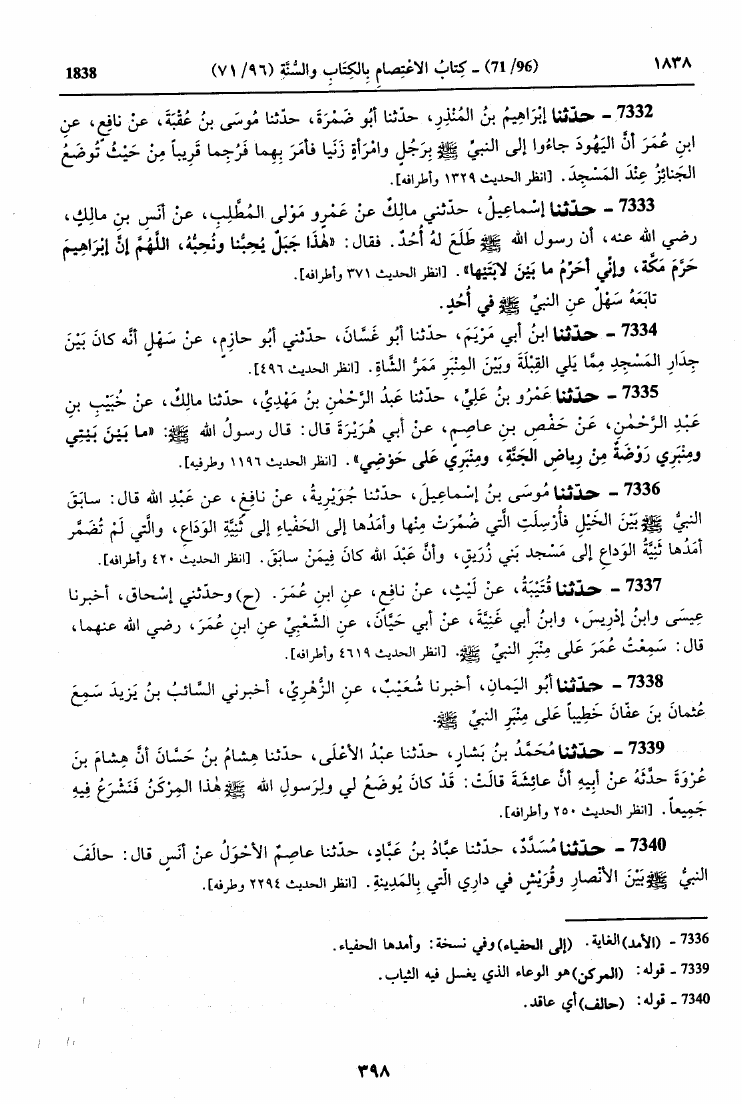 ١٨٣٨ (71/96) ـ كِتابُ الاعْتِصام بِالكِتَابِ والسُّنَّةِ (٧١/٩٦) 1838
7332 ـ حدّثنا إبْرَاهِيمُ بنُ المُنْذِرِ، حدّثنا أبُو ضَمْرَةَ، حدّثنا مُوسَى بنُ عُقْبَةَ، عنْ نافِعٍ، عنِ
ابنِ عُمَرَ أنَّ اليَهُودَ جاءُوا إلى النبيِّ ﷺ بِرَجُلٍ وامْرأةٍ زَنَيا فأمَرَ بِهِما فَرُجِما قَرِيباً مِنْ حَيْثُ تُوضَعُ
الجَنائِزُ عِنْدَ المَسْجِدَ. [انظر الحديث ١٣٢٩ وأطرافه].
7333 ـ حدّثنا إسْماعِيلُ، حدّثني مالِكٌ عنْ عَمْرٍو مَوْلى المُطَّلِبِ، عنْ أنَسِ بنِ مالِكٍ،
رضي الله عنه، أن رسول الله ﷺ طَلَعَ لهُ أُحُدٌ. فقال: «هٰذا جَبَلٌ يُحِبُّنا ونُحِبُّهُ، اللَّهُمَّ إنَّ إبْرَاهِيمَ
حَرَّمَ مَكَّةَ، وإنِّي أحَرِّمُ ما بَيْنَ لابَتَيْها». [انظر الحديث ٣٧١ وأطرافه].
تابَعَهُ سَهْلٌ عنِ النبيِّ ﷺ في أُحُدٍ.
7334 ـ حدّثنا ابنُ أبي مَرْيَمَ، حدّثنا أبُو غَسَّانَ، حدّثني أبُو حازِمٍ، عنْ سَهْلٍ أنَّه كانَ بَيْنَ
جِدَارِ المَسْجِدِ مِمَّا يَلي القِبْلَةَ وبَيْنَ المِنْبَرِ مَمَرُّ الشَّاةِ. [انظر الحديث ٤٩٦].
7335 ـ حدّثنا عَمْرُو بنُ عَلِيٍّ، حدّثنا عَبدُ الرَّحْمٰنِ بنُ مَهْدِيٍّ، حدّثنا مالِكٌ، عنْ خُبَيْبِ بنِ
عَبْدِ الرَّحْمٰنِ، عَنْ حَفْصِ بنِ عاصِمٍ، عنْ أبي هُرَيْرَةَ قال: قال رسولُ الله ﷺ: «ما بَيْنَ بَيْتِي
ومِنْبَرِي رَوْضَةٌ مِنْ رِياضِ الجَنَّةِ، ومِنْبَرِي عَلى حَوْضِي». [انظر الحديث ١١٩٦ وطرفيه].
7336 ـ حدّثنا مُوسَى بنُ إسْماعِيلَ، حدّثنا جُوَيْرِيةُ، عنْ نافِعٍ، عن عَبْدِ الله قال: سابَقَ
النبيُّ ﷺ بَيْنَ الخَيْلِ فأُرْسِلَتِ الَّتي ضُمِّرَتْ مِنْها وأمَدُها إلى الحَفْياءِ إلى ثَنِيَّةِ الوَدَاعِ، والَّتي لَمْ تُضَمَّرْ
أمَدُها ثَنِيَّةُ الوداعِ إلى مَسْجد بَني زُرَيقٍ، وأنَّ عَبْدَ الله كانَ فِيمَنْ سابَقَ. [انظر الحديث ٤٢٠ وأطرافه].
7337 ـ حدّثنا قُتَيْبَةُ، عنْ لَيْثٍ، عنْ نافِعٍ، عنِ ابنِ عُمَرَ. (ح) وحدّثني إسْحاق، أخبرنا
عِيسَى وابنُ إدْرِيسَ، وابنُ أبي غَنِيَّةَ، عنْ أبي حَيَّانَ، عنِ الشَّعْبِيِّ عنِ ابنِ عُمَرَ، رضي الله عنهما،
قال: سَمِعْتُ عُمَرَ عَلى مِنْبَرِ النبيِّ ﷺ. [انظر الحديث ٤٦١٩ وأطرافه].
7338 ـ حدّثنا أبُو اليَمانِ، أخبرنا شُعَيْبٌ، عنِ الزُّهْرِيِّ، أخبرني السَّائبُ بنُ يَزِيدَ سَمِعَ
عُثمانَ بنَ عفّانَ خَطِيباً عَلى مِنْبَرِ النبيِّ ﷺ.
7339 ـ حدّثنا مُحَمَّدُ بنُ بَشارٍ، حدّثنا عبْدُ الأعْلَى، حدّثنا هِشامُ بنُ حَسَّانَ أنَّ هِشامَ بنَ
عُرْوَةَ حدَّثَهُ عنْ أبِيهِ أنَّ عائِشَةَ قالَتْ: قَدْ كانَ يُوضَعُ لي ولِرَسولِ الله ﷺ هٰذا المِرْكَنُ فَنَشْرَعُ فِيهِ
جَمِيعاً. [انظر الحديث ٢٥٠ وأطرافه].
7340 ـ حدّثنا مُسَدَّدٌ، حدّثنا عبَّادُ بنُ عَبَّادٍ، حدّثنا عاصِمٌ الأحْوَلُ عنْ أنَسٍ قال: حالَفَ
النبيُّ ﷺ بَيْنَ الأنْصارِ وقُرَيْشٍ في دارِي الَّتي بِالمَدِينةِ. [انظر الحديث ٢٢٩٤ وطرفه].
7336 ـ (الأمد) الغاية. (إلى الحفياء) وفي نسخة: وأمدها الحفياء.
7339 ـ قوله: (المركن) هو الوعاء الذي يغسل فيه الثياب.
7340 ـ قوله: (حالف) أي عاقد.
٣٩٨